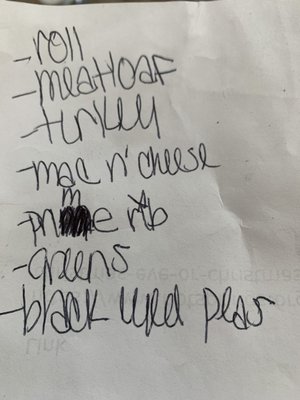 - roll
- meatloaf
- turkey
- mac n' cheese
- prime rib
- greens
- black eyed peas